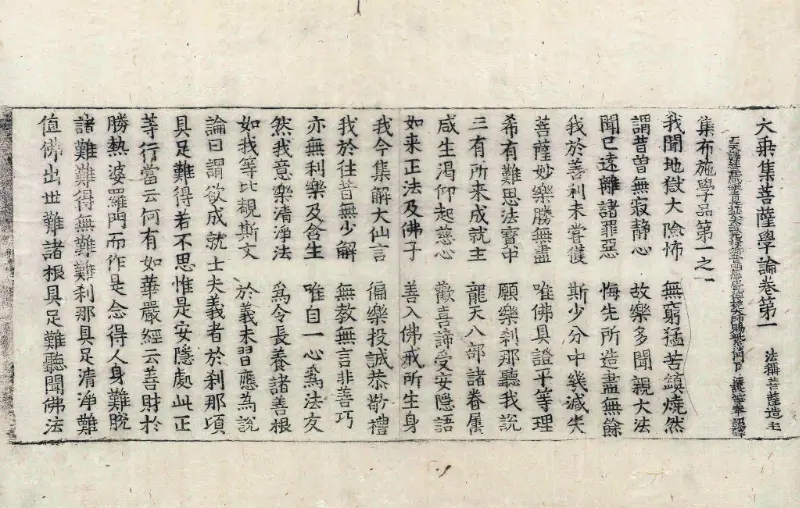 大乘集菩薩學論卷第一 法稱菩薩造
集布施學品第一之一
我聞地獄大險怖 無窮猛苦鎮燒然
謂昔曽無寂静心 故樂多聞親大法
聞已遠離諸罪惡 悔先所造盡無餘
我於善利未嘗獲 斯少分中幾減失
菩薩妙樂勝無盡 唯佛具證平等理
希有難思法寶中 願樂刹那聽我說
三有所来成就主 龍天八部諸眷屬
咸生渴仰起慈心 歡喜諦受安隠語
如来正法及佛子 善入佛戒所生身
我今集解大仙言 徧樂投誠恭敬禮
我於往昔無少解 無教無言非善巧
亦無利樂及含生 唯自一心爲法友
然我意樂清淨法 爲令長養諸善根
如我等比覩斯文 於義未習應爲說
論曰謂欲成就士夫義者於刹那頃
具足難得若不思惟是安隠處此正
等行當云何有如華嚴經云善財於
勝熱婆羅門而作是念得人身難脫
諸難難得無難難刹那具足清淨難
值佛出世難諸根具足難聽聞佛法